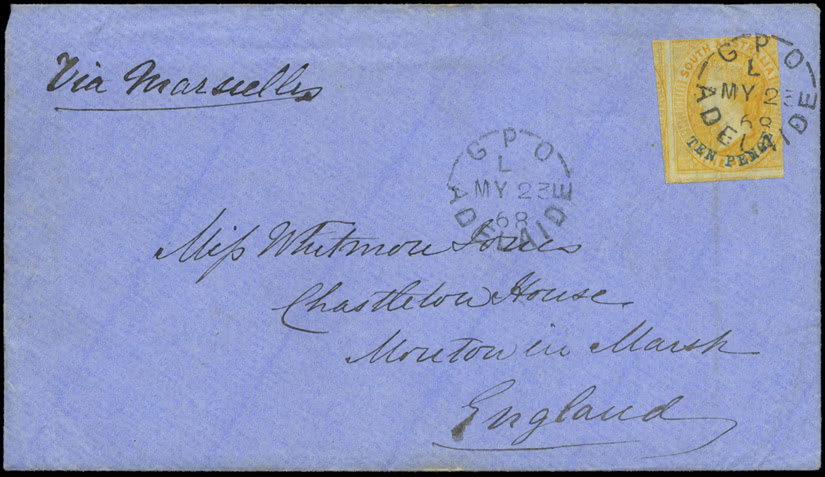 Via Marseilles
SOUTH AUSTRALIA
TEN PENCE
GPO
L
MY 23
68
ADELAIDE
GPO
L
MY 23
68
ADELAIDE
Miss Whitmore Jones
Chastleton House
Moreton in Marsh
England